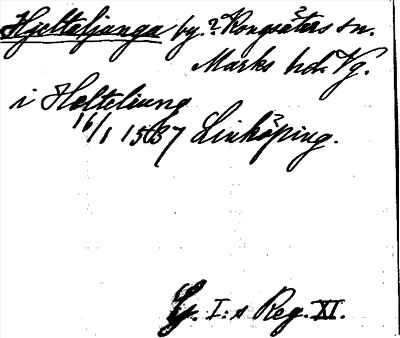 Hjelteljunga by. ? Kongsäters sn.
Marks hd. Vg.
i Helteliung
16/1 1537 Linköping.
G. I:s Reg. XI.